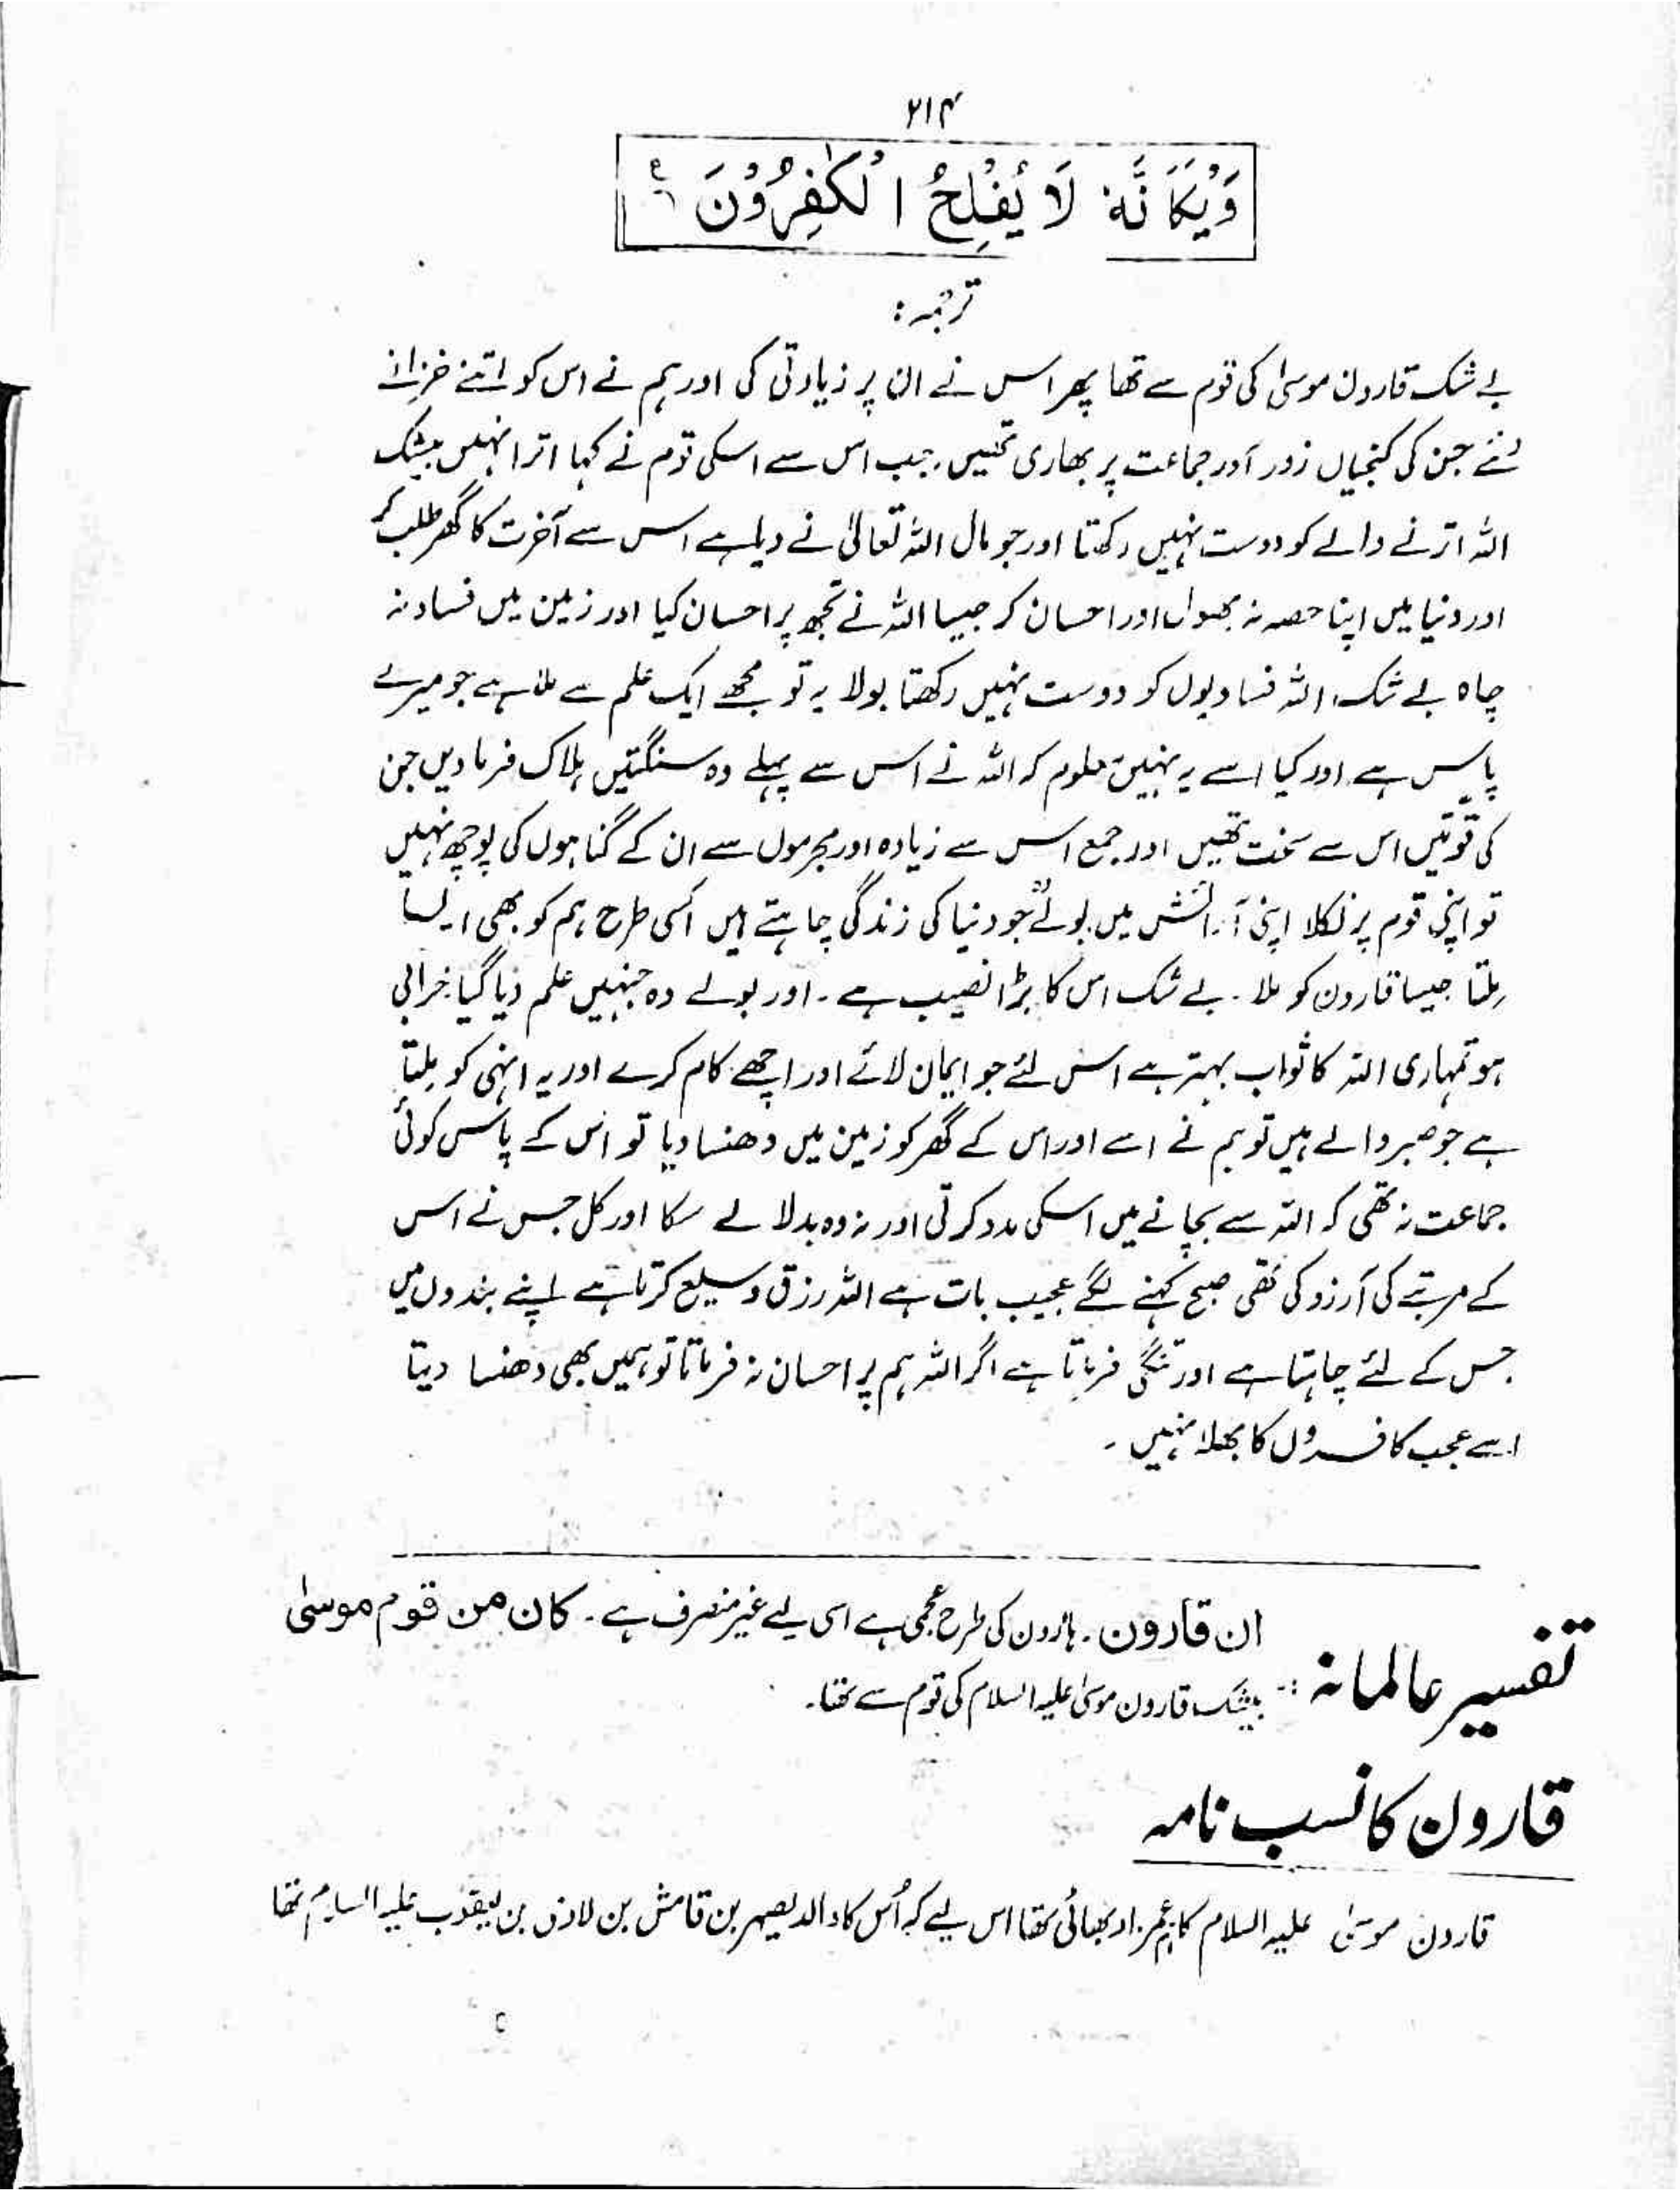 ۲۱۴
وَيْكَاَنَّهٗ لَا يُفْلِحُ الْكٰفِرُوْنَ ؏
ترجمہ :
بے شک قارون موسیٰ کی قوم سے تھا پھر اس نے ان پر زیادتی کی اور ہم نے اس کو اتنے خزانے
دئے جن کی کنجیاں زور آور جماعت پر بھاری تھیں۔ جب اس سے اسکی قوم نے کہا اترا نہیں بیشک
اللہ اترنے والے کو دوست نہیں رکھتا اور جو مال اللہ تعالیٰ نے دیا ہے اس سے آخرت کا گھر طلب کر
اور دنیا میں اپنا حصہ نہ بھول اور احسان کر جیسا اللہ نے تجھ پر احسان کیا اور زمین میں فساد نہ
چاہ بے شک اللہ فسادیوں کو دوست نہیں رکھتا بولا یہ تو مجھے ایک علم سے ملا ہے جو میرے
پاس ہے اور کیا اسے یہ نہیں معلوم کہ اللہ نے اس سے پہلے وہ سنگتیں ہلاک فرما دیں جن
کی قوتیں اس سے سخت تھیں اور جمع اس سے زیادہ اور مجرموں سے ان کے گناہوں کی پوچھ نہیں
تو اپنی قوم پر نکلا اپنی آرائش میں بولے وہ جو دنیا کی زندگی چاہتے ہیں اسی طرح ہم کو بھی ایسا
ملتا جیسا قارون کو ملا۔ بے شک اس کا بڑا نصیب ہے۔ اور بولے وہ جنہیں علم دیا گیا خرابی
ہو تمہاری اللہ کا ثواب بہتر ہے اس لئے جو ایمان لائے اور اچھے کام کرے اور یہ انہی کو ملتا
ہے جو صبر والے ہیں تو ہم نے اسے اور اس کے گھر کو زمین میں دھنسا دیا تو اس کے پاس کوئی
جماعت نہ تھی کہ اللہ سے بچانے میں اسکی مدد کرتی اور نہ وہ بدلا لے سکا اور کل جس نے اس
کے مرتبے کی آرزو کی تھی صبح کہنے لگے عجیب بات ہے اللہ رزق وسیع کرتا ہے اپنے بندوں میں
جس کے لئے چاہتا ہے اور تنگی فرماتا ہے اگر اللہ ہم پر احسان نہ فرماتا تو ہمیں بھی دھنسا دیتا
اے عجب کافروں کا بھلا نہیں۔
تفسیر عالمانہ :- ان قارون۔ ہارون کی طرح عجمی ہے اسی لیے غیر منصرف ہے۔ کان من قوم موسیٰ
بیشک قارون موسیٰ علیہ السلام کی قوم سے تھا۔
قارون کا نسب نامہ
قارون موسیٰ علیہ السلام کا عمزاد بھائی تھا اس لیے کہ اُس کا والد یصہر بن قامش بن لاوی بن یعقوب علیہ السلام تھا